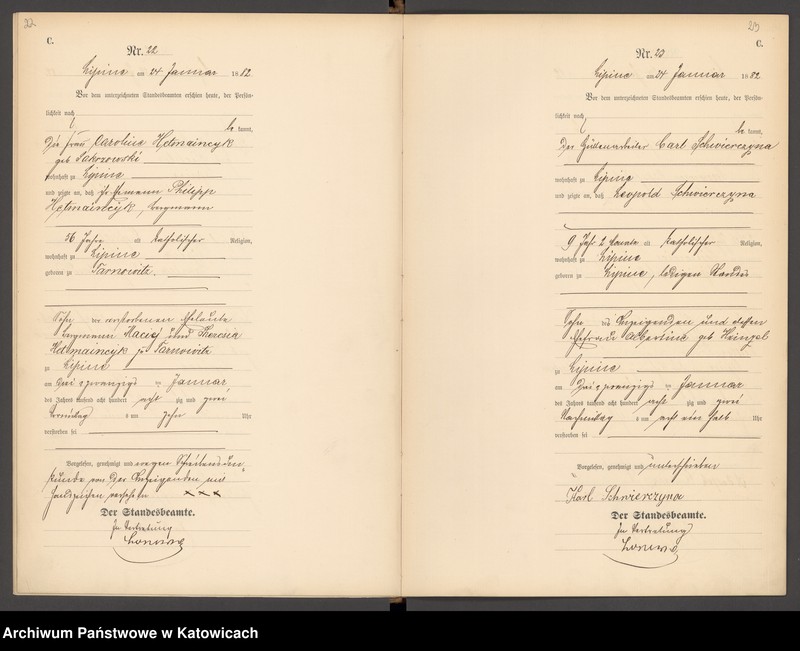 22
C.
Nr. 22
Lipine am 24 Januar 1882
Vor dem unterzeichneten Standesbeamten erschien heute, der Persön-
lichkeit nach
be kannt,
Die Frau Caroline Hotmainczyk
geb
wohnhaft zu Lipine
und zeigte an, daß ihr Ehemann Philipp
Hotmainczyk, Bergmann
36 Jahre alt katholischer Religion,
wohnhaft zu Lipine
geboren zu Tarnowitz.
Sohn der verstorbenen Eheleute
Bergmann und Theresia
Hotmainczyk zu Tarnowitz
zu Lipine
am zwei zwanzigs ten Januar
des Jahres tausend acht hundert acht zig und zwei
Vormittag s um zehn Uhr
verstorben sei
Vorgelesen, genehmigt und wegen Schreibensun-
kunde von der Anzeigenden mit
Handzeichen versehen xxx
Der Standesbeamte.
In Vertretung
23
C.
Nr. 23
Lipine am 24 Januar 1882
Vor dem unterzeichneten Standesbeamten erschien heute, der Persön-
lichkeit nach
be kannt,
Der Hüttenarbeiter Carl Schwierczyna
wohnhaft zu Lipine
und zeigte an, daß Leopold Schwierczyna
9 Jahr 2 Monate alt katholischer Religion,
wohnhaft zu Lipine
geboren zu Lipine, ledigen Standes
Sohn des Anzeigenden und dessen
Ehefrau Albertine geb Heinzel
zu Lipine
am zwei zwanzigs ten Januar
des Jahres tausend acht hundert acht zig und zwei
Nachmittag s um acht ein halb Uhr
verstorben sei
Vorgelesen, genehmigt und unterschrieben
Karl Schwierczyna
Der Standesbeamte.
In Vertretung
Archiwum Państwowe w Katowicach